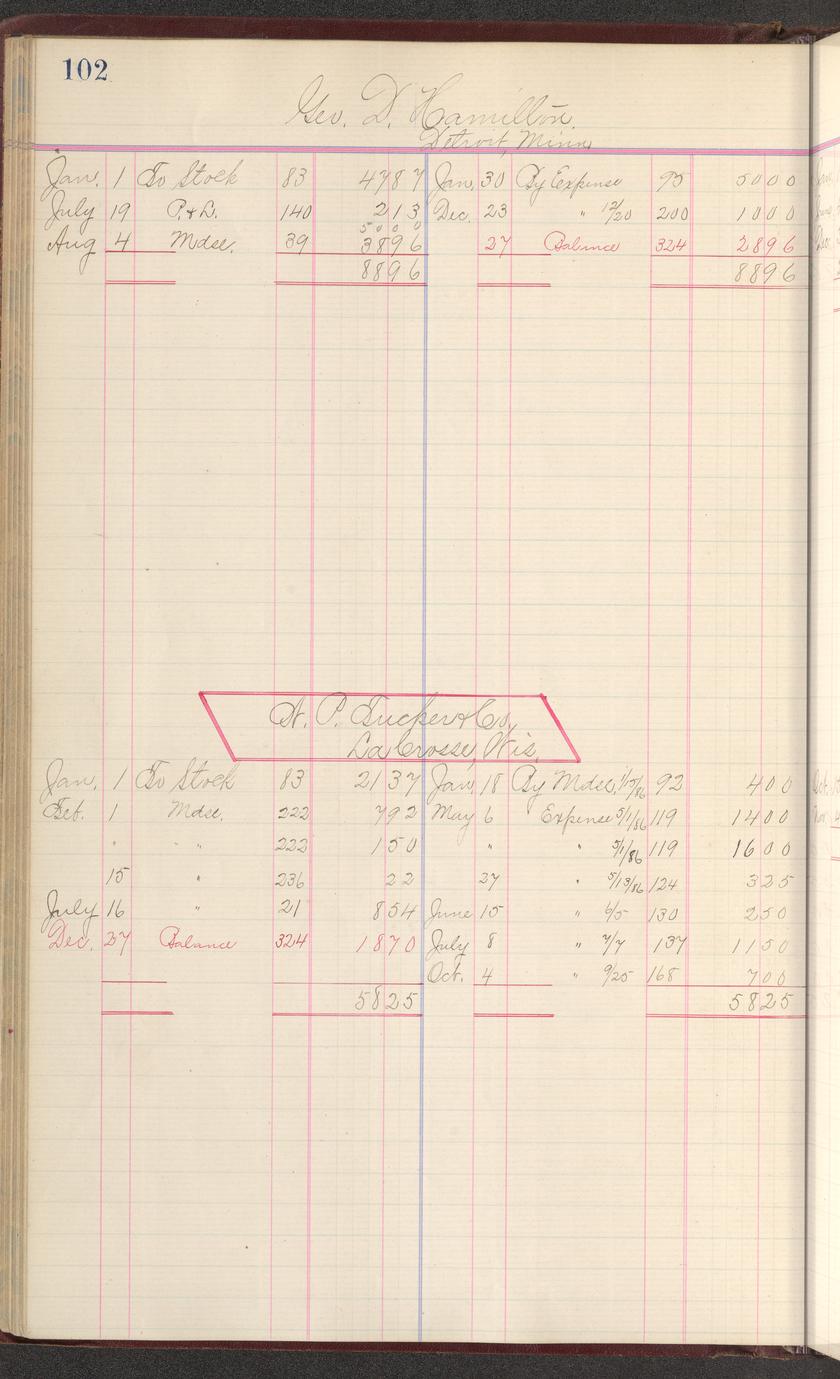 102
Geo. D. Hamilton
Detroit, Minn.
Jan. 1 To Stock 83 4787 Jan. 30 By Expense 95 5000
July 19 P. & L. 140 213 Dec. 23 " 12/20 200 1000
5000
Aug 4 Mdse. 39 3896 27 Balance 324 2896
8896 8896
Tucker & Co.
La Crosse, Wis.
Jan. 1 To Stock 83 2137 Jan. 18 By Mdse. 1/15/86 92 400
Feb. 1 Mdse. 222 792 May 6 Expense 5/1/86 119 1400
" " " 222 150 " " 5/1/86 119 1600
15 " 236 22 27 " 5/13/86 124 325
July 16 " 21 854 June 15 " 6/5 130 250
Dec. 27 Balance 324 1870 July 8 " 7/7 137 1150
Oct. 4 " 9/25 168 700
5825 5825